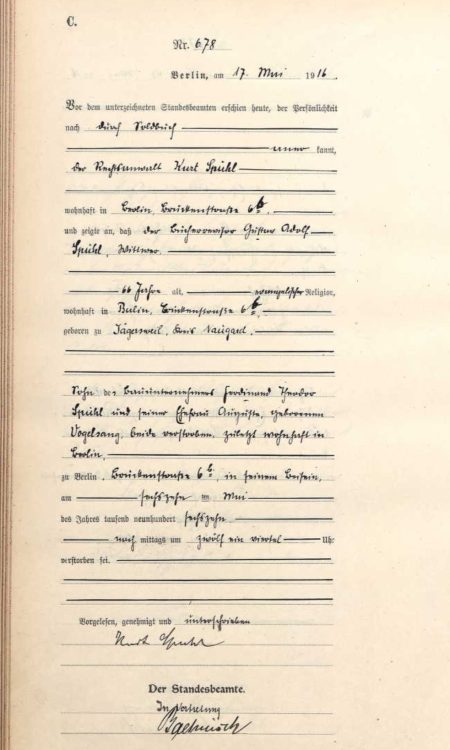 C.
Nr. 678
Berlin, am 17. Mai 1916.
Vor dem unterzeichneten Standesbeamten erschien heute, der Persönlichkeit
nach durch Soldbuch
aner kannt,
der Rechtsanwalt Kurt
wohnhaft in Berlin, Brückenstraße 6b,
und zeigte an, daß der Bücherrevisor Gustav Adolf
Witwer,
66 Jahre alt, evangelischer Religion,
wohnhaft in Berlin, Brückenstraße 6b,
geboren zu Kreis Naugard,
Sohn des Bauunternehmers Ferdinand Theodor
und seiner Ehefrau Auguste, geborenen
Vogelsang, beide verstorben, zuletzt wohnhaft in
Berlin,
zu Berlin, Brückenstraße 6b, in seinem Beisein,
am sechszehn ten Mai
des Jahres tausend neunhundert sechszehn
nach mittags um zwölf ein viertel Uhr
verstorben sei.
Vorgelesen, genehmigt und unterschrieben
Kurt
Der Standesbeamte.
In Vertretung